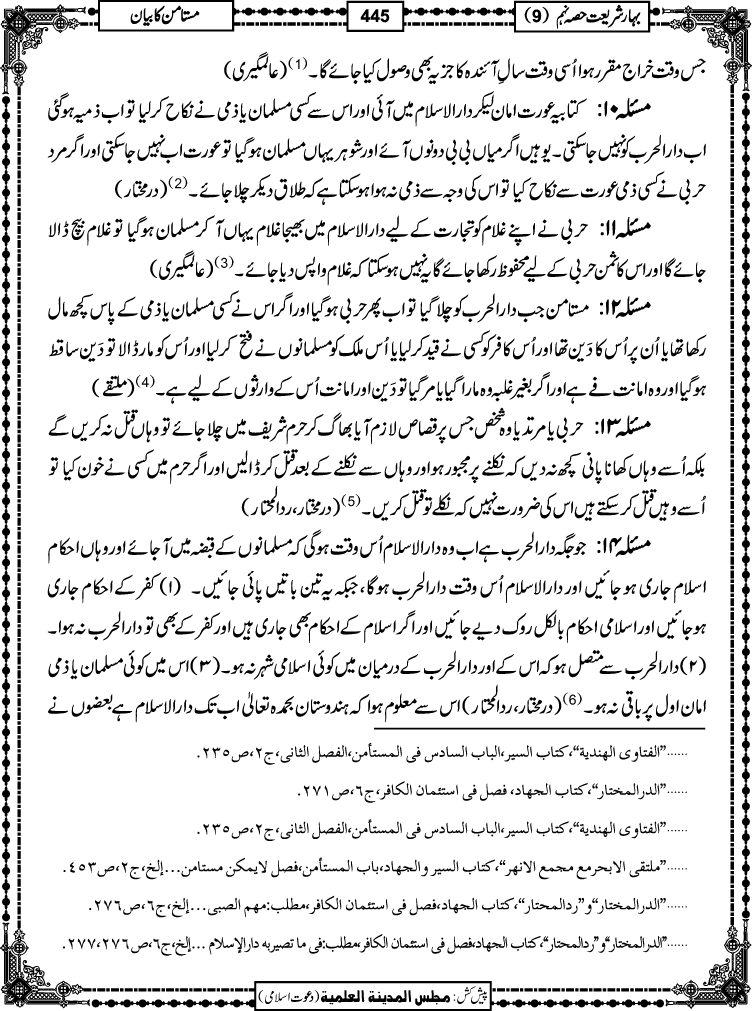 بہار شریعت حصہ نہم (9)
445
مستامن کا بیان
جس وقت خراج مقرر ہوا اُسی وقت سالِ آئندہ کا جزیہ بھی وصول کیا جائے گا۔(1) (عالمگیری)
مسئلہ ۱۰: کتابیہ عورت امان لیکر دارالاسلام میں آئی اور اس سے کسی مسلمان یا ذمی نے نکاح کرلیا تو اب ذمیہ ہوگئی
اب دارالحرب کو نہیں جاسکتی۔ یوہیں اگر میاں بی بی دونوں آئے اور شوہر یہاں مسلمان ہوگیا تو عورت اب نہیں جاسکتی اور اگر مرد
حربی نے کسی ذمی عورت سے نکاح کیا تو اس کی وجہ سے ذمی نہ ہوا ہوسکتا ہے کہ طلاق دیکر چلا جائے۔(2) (درمختار)
مسئلہ ۱۱: حربی نے اپنے غلام کو تجارت کے لیے دارالاسلام میں بھیجا غلام یہاں آکر مسلمان ہوگیا تو غلام بیچ ڈالا
جائے گا اور اس کا ثمن حربی کے لیے محفوظ رکھا جائے گا یہ نہیں ہوسکتا کہ غلام واپس دیا جائے۔(3) (عالمگیری)
مسئلہ ۱۲: مستامن جب دارالحرب کو چلا گیا تو اب پھر حربی ہوگیا اور اگر اس نے کسی مسلمان یا ذمی کے پاس کچھ مال
رکھا تھا یا اُن پر اُس کا دَین تھا اور اُس کافر کو کسی نے قید کرلیا یا اُس ملک کو مسلمانوں نے فتح کرلیا اور اُس کو مار ڈالا تو دَین ساقط
ہوگیا اور وہ امانت فے ہے اور اگر بغیر غلبہ وہ مارا گیا یا مرگیا تو دَین اور امانت اُس کے وارثوں کے لیے ہے۔(4) (ملتقے)
مسئلہ ۱۳: حربی یا مرتد یا وہ شخص جس پر قصاص لازم آیا بھاگ کر حرم شریف میں چلا جائے تو وہاں قتل نہ کریں گے
بلکہ اُسے وہاں کھانا پانی کچھ نہ دیں کہ نکلنے پر مجبور ہو اور وہاں سے نکلنے کے بعد قتل کرڈالیں اور اگر حرم میں کسی نے خون کیا تو
اُسے وہیں قتل کرسکتے ہیں اس کی ضرورت نہیں کہ نکلے تو قتل کریں۔(5) (درمختار، ردالمحتار)
مسئلہ ۱۴: جو جگہ دارالحرب ہے اب وہ دارالاسلام اُس وقت ہوگی کہ مسلمانوں کے قبضہ میں آجائے اور وہاں احکام
اسلام جاری ہوجائیں اور دارالاسلام اُس وقت دارالحرب ہوگا، جبکہ یہ تین باتیں پائی جائیں۔ (۱) کفر کے احکام جاری
ہوجائیں اور اسلامی احکام بالکل روک دیے جائیں اور اگر اسلام کے احکام بھی جاری ہیں اور کفر کے بھی تو دارالحرب نہ ہوا۔
(۲) دارالحرب سے متصل ہو کہ اس کے اور دارالحرب کے درمیان میں کوئی اسلامی شہر نہ ہو۔ (۳) اس میں کوئی مسلمان یا ذمی
امان اول پر باقی نہ ہو۔(6) (درمختار، ردالمحتار) اس سے معلوم ہوا کہ ہندوستان بحمدہ تعالیٰ اب تک دارالاسلام ہے بعضوں نے
......”الفتاوی الهندیة“، کتاب السیر، الباب السادس فی المستأمن، الفصل الثانی، ج۲، ص۲۳۵.
......”الدرالمختار“، کتاب الجهاد، فصل فی استئمان الکافر، ج۶، ص۲۷۱.
......”الفتاوی الهندیة“، کتاب السیر، الباب السادس فی المستأمن، الفصل الثانی، ج۲، ص۲۳۵.
......”ملتقی الابحر مع مجمع الانهر“، کتاب السیر و الجهاد، باب المستأمن، فصل لایمکن مستامن...إلخ، ج۲، ص۴۵۳.
......”الدرالمختار“ و ”ردالمحتار“، کتاب الجهاد، فصل فی استئمان الکافر، مطلب: مهم الصبی...إلخ، ج۶، ص۲۷۶.
......”الدرالمختار“ و ”ردالمحتار“، کتاب الجهاد، فصل فی استئمان الکافر، مطلب: فی ما تصیربه دارالإسلام...إلخ، ج۶، ص۲۷۶، ۲۷۷.
پیش کش: مجلس المدینة العلمیة (دعوت اسلامی)